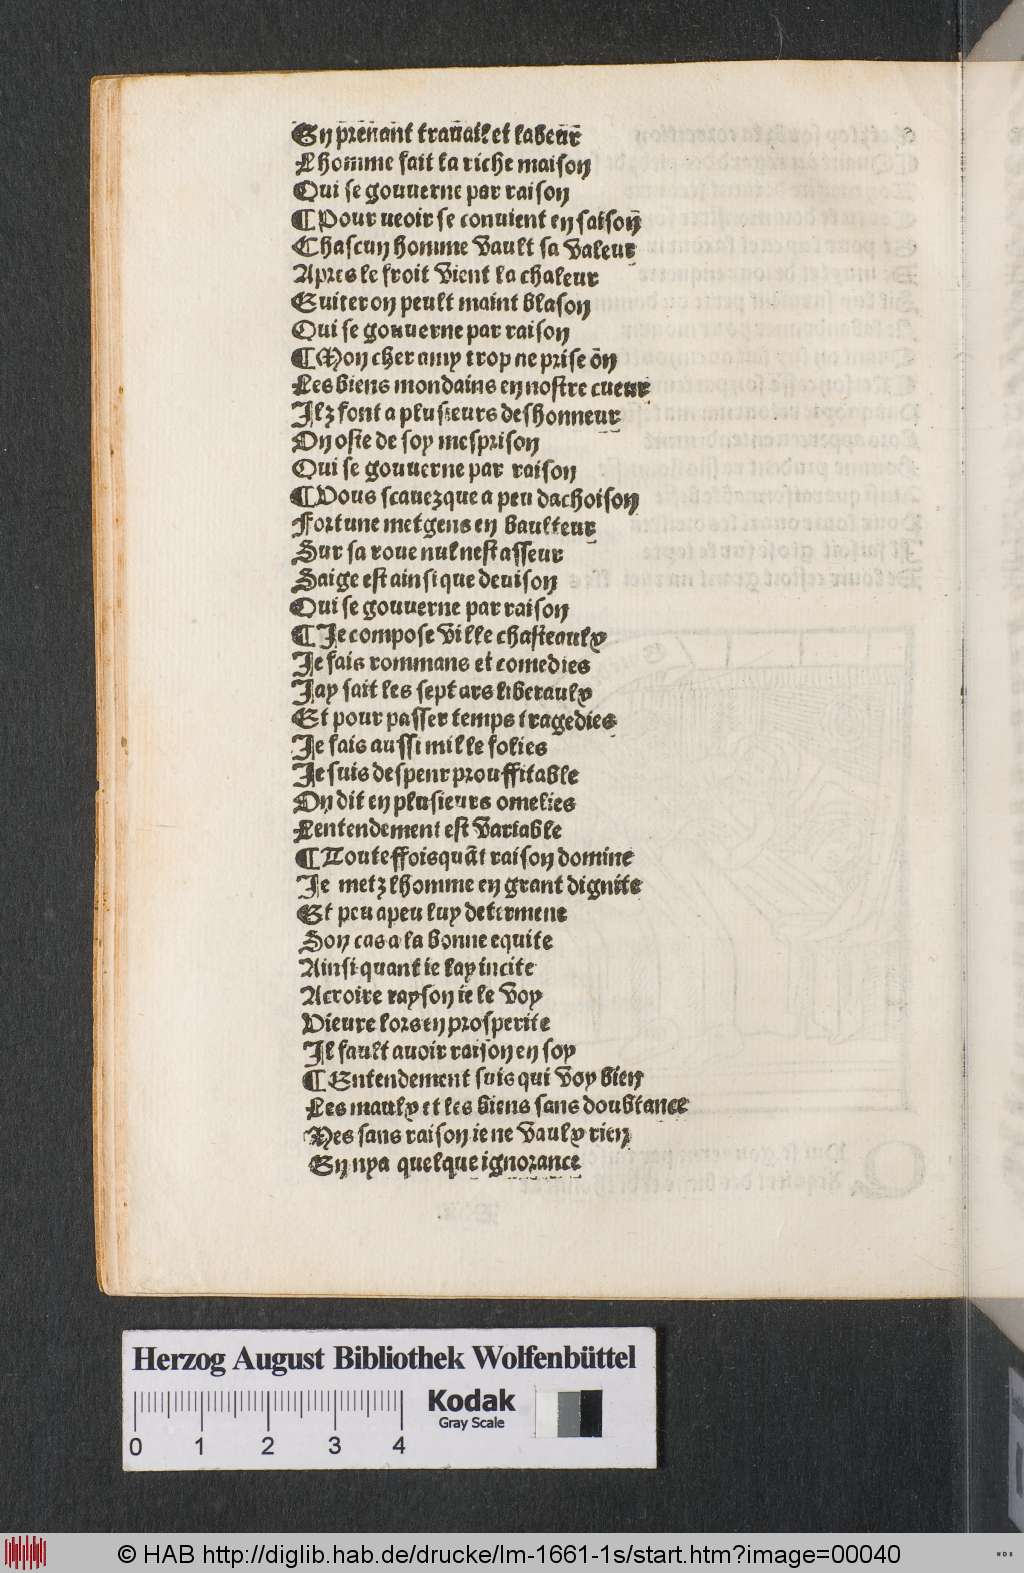 En prenant trauail et labeur
Lhomme fait la riche maison
Qui se gouuerne par raison
¶ Pour ueoir se conuient en saison
Chascun homme vault sa valeur
Apres le froit vient la chaleur
Euiter on peult maint blason
Qui se gouuerne par raison
¶ Mon cher amy trop ne prise õn
Les biens mondains en nostre cueur
Ilz font a plusieurs deshonneur
On oste de soy mesprison
Qui se gouuerne par raison
¶ Vous scauez que a peu dachoison
Fortune met gens en haulteur
Sur sa roue nul nest asseur
Saige est ainsi que deuison
Qui se gouuerne par raison
¶ Je compose ville chasteaulx
Je fais rommans et comedies
Jay fait les sept ars liberaulx
Et pour passer temps tragedies
Je fais aussi mille folies
Je suis despenr prouffitable
On dit en plusieurs omelies
Lentendement est variable
¶ Touteffois quãt raison domine
Je metz lhomme en grant dignite
Et peu apeu luy determene
Son cas a la bonne equite
Ainsi quant ie lay incite
Acroire rayson ie le voy
Vieure lors en prosperite
Il fault auoir raison en soy
¶ Entendement suis qui voy bien
Les maulx et les biens sans doubtance
Mes sans raison ie ne vaulx rien
En nya quelque ignorance
Herzog August Bibliothek Wolfenbüttel
Kodak
Gray Scale
0 1 2 3 4
© HAB http://diglib.hab.de/drucke/lm-1661-1s/start.htm?image=00040